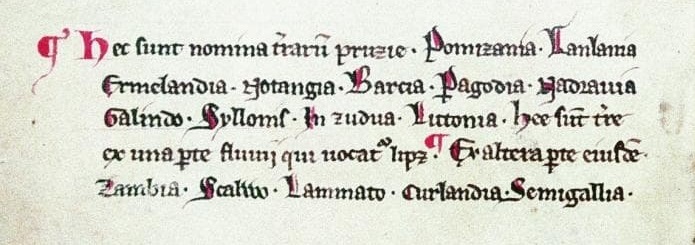 ¶ Hec sunt nomina t̄rarū pruzie · Pomizania · Lanlania
Ermelandia · Notangia · Barcia · Pagodia · Nadrauia
Galindo · Syllonis · In zudua · Littonia · hee sūt tr̄e
ex una ꝑte fluuij qui uocatᵒ lipz · ¶ Ex altera ꝑte eiusdē ·
Zambia · Scalwo · Lammato · Curlandia · Semigallia ·